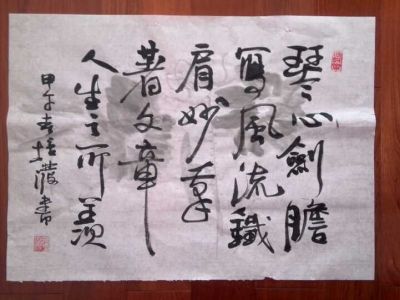 琴心劍膽
寫風流鐵
肩妙筆
著文章
人生之所羨
甲午春書